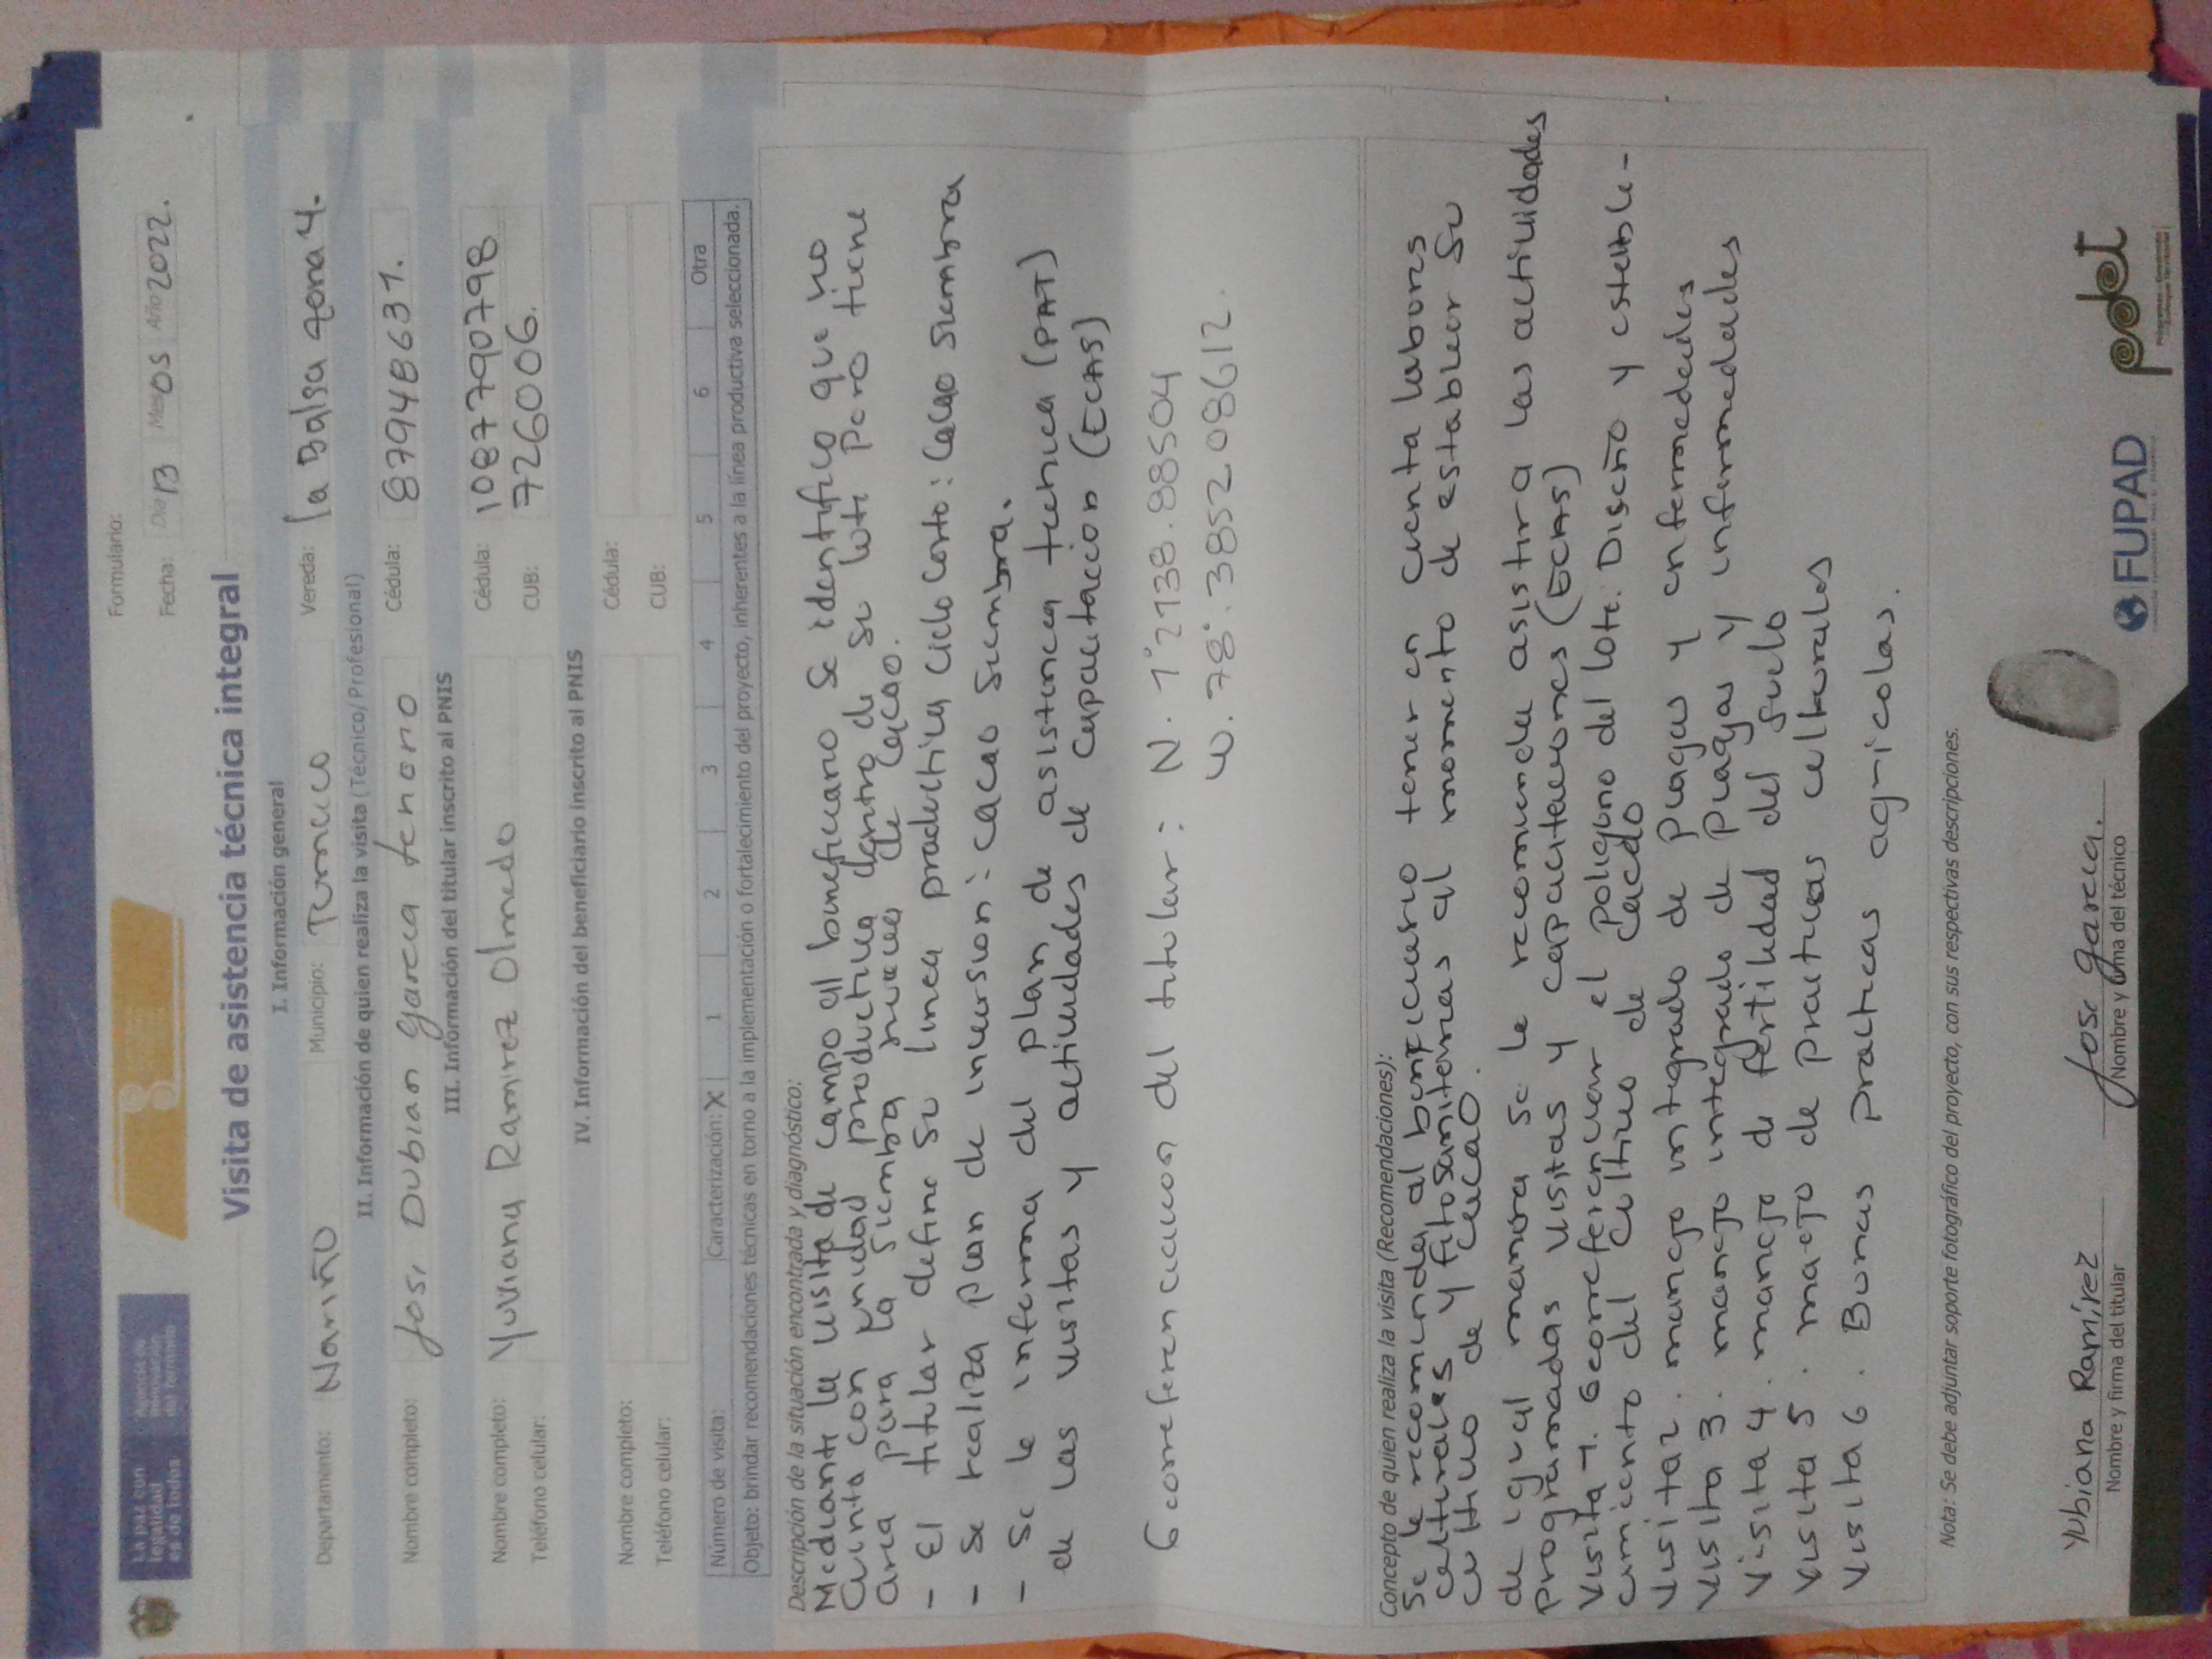 La paz con
legalidad
es de todos
Formulario:
Fecha: Día 13 Mes 05 Año 2022.
Visita de asistencia técnica integral
I. Información general
Departamento: Nariño Municipio: Tumaco Vereda: la Balsa zona 4.
II. Información de quien realiza la visita (Técnico/ Profesional)
Nombre completo: Jose Dubian Garcia tenorio Cédula: 87948631.
III. Información del titular inscrito al PNIS
Nombre completo: Yuviana Ramirez Olmedo Cédula: 1087790798
Teléfono celular: CUB: 726006.
IV. Información del beneficiario inscrito al PNIS
Nombre completo: Cédula:
Teléfono celular: CUB:
Número de visita: Caracterización: X 1 2 3 4 5 6 Otra
Objeto: brindar recomendaciones técnicas en torno a la implementación o fortalecimiento del proyecto, inherentes a la línea productiva seleccionada.
Descripción de la situación encontrada y diagnóstico:
Mediante la visita de campo al beneficiario se identifico que no
Cuenta con unidad productiva dentro de su lote pero tiene
area para la siembra nueva de cacao.
- El titular define su linea productiva ciclo corto: cacao siembra
- Se realiza plan de inversion: cacao siembra.
- Se le informa del plan de asistencia tecnica (PAT)
de las visitas y actividades de capacitacion (ECAS)
Georreferenciacion del titular: N. 1°2138.88504
W. 78°.385208612.
Concepto de quien realiza la visita (Recomendaciones):
Se le recomienda al beneficiario tener en cuenta labores
culturales y fitosanitarias al momento de establecer su
cultivo de cacao.
de igual manera se le recomienda asistir a las actividades
programadas visitas y capacitaciones (ECAS)
Visita 1. Georreferenciar el poligono del lote. Diseño y estable-
cimiento del cultivo de cacao
Visita 2. manejo integrado de plagas y enfermedades
Visita 3. manejo integrado de plagas y infermedades
Visita 4. manejo de fertilidad del suelo
Visita 5. maejo de practicas culturales
Visita 6. Buenas practicas agricolas.
Nota: Se debe adjuntar soporte fotográfico del proyecto, con sus respectivas descripciones.
Yubiana Ramírez Jose Garcia.
Nombre y firma del titular Nombre y firma del técnico
FUPAD
pdet